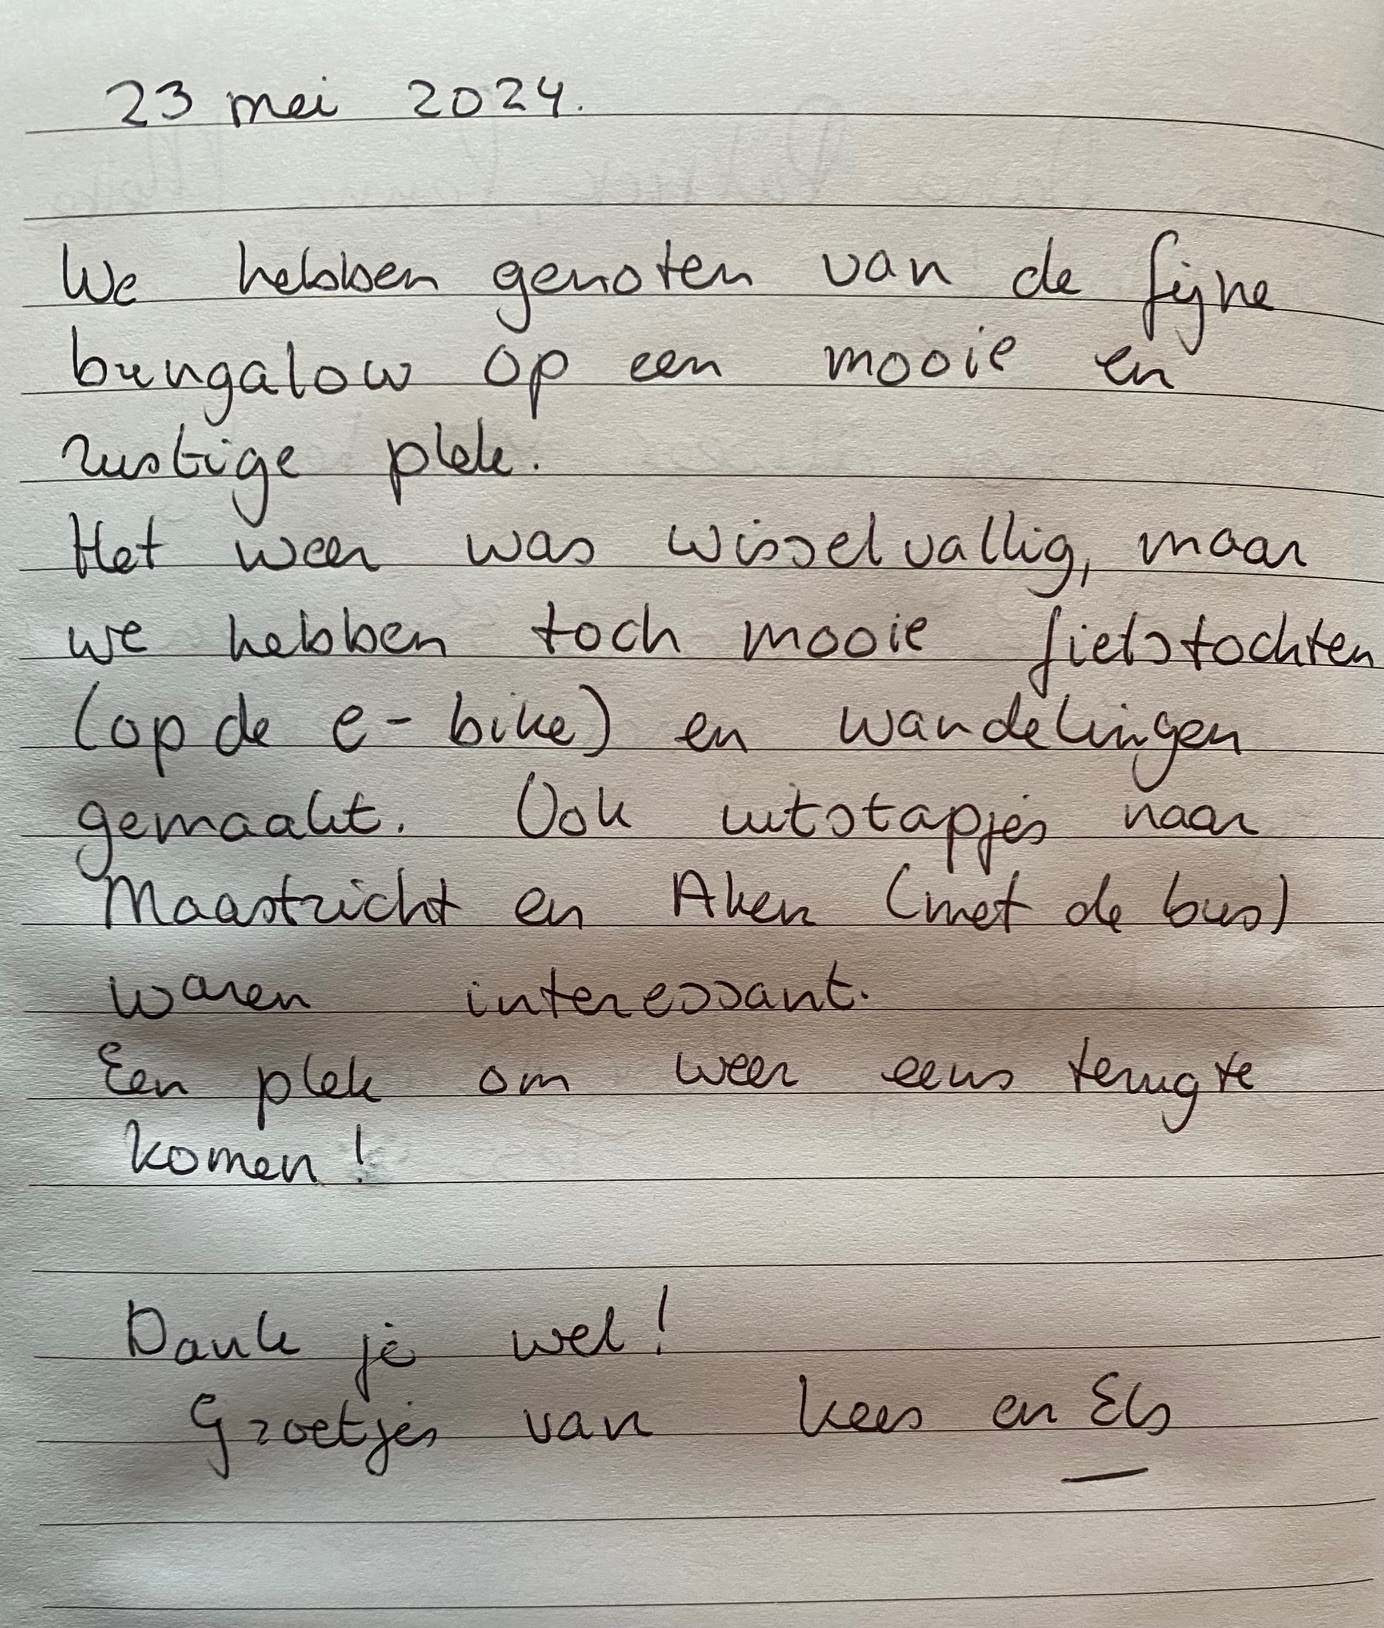 23 mei 2024.
We hebben genoten van de fijne
bungalow op een mooie en
rustige plek.
Het weer was wisselvallig, maar
we hebben toch mooie fietstochten
(op de e-bike) en wandelingen
gemaakt. Ook uitstapjes naar
Maastricht en Aken (met de bus)
waren interessant.
Een plek om weer eens terug te
komen!
Dank je wel!
Groetjes van Kees en Els